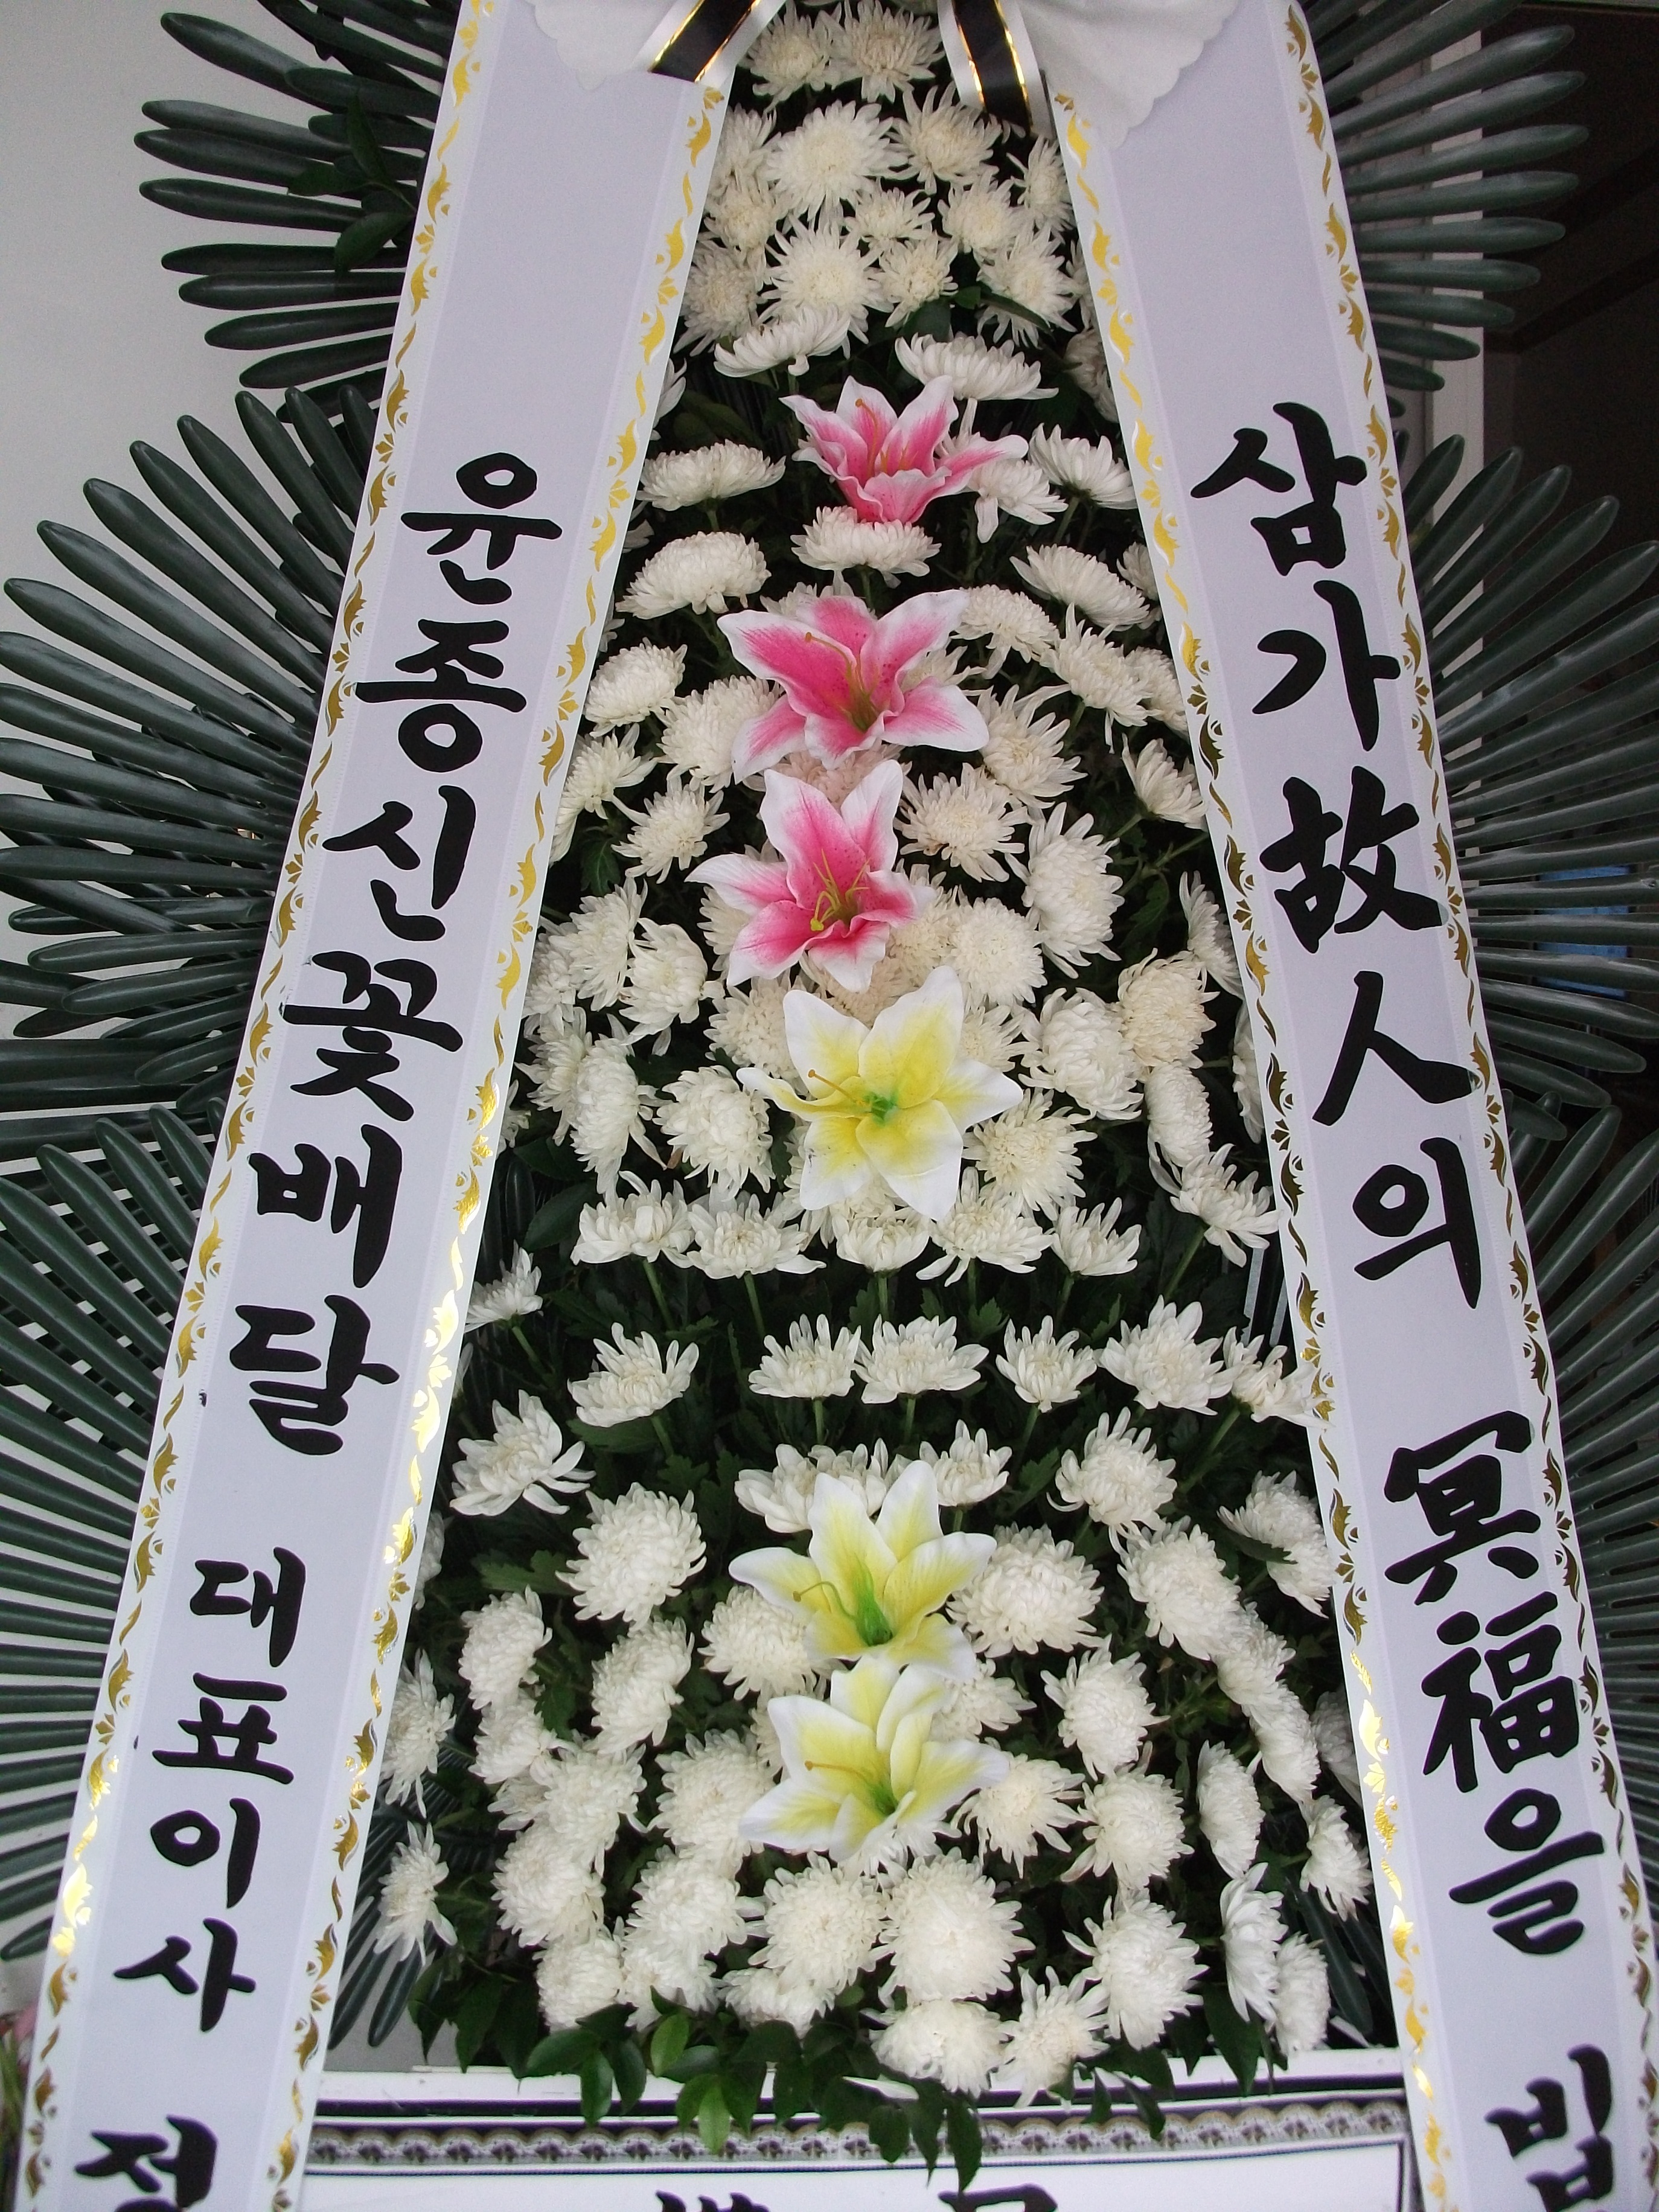 윤종신꽃배달 대표이사
삼가故人의 冥福을